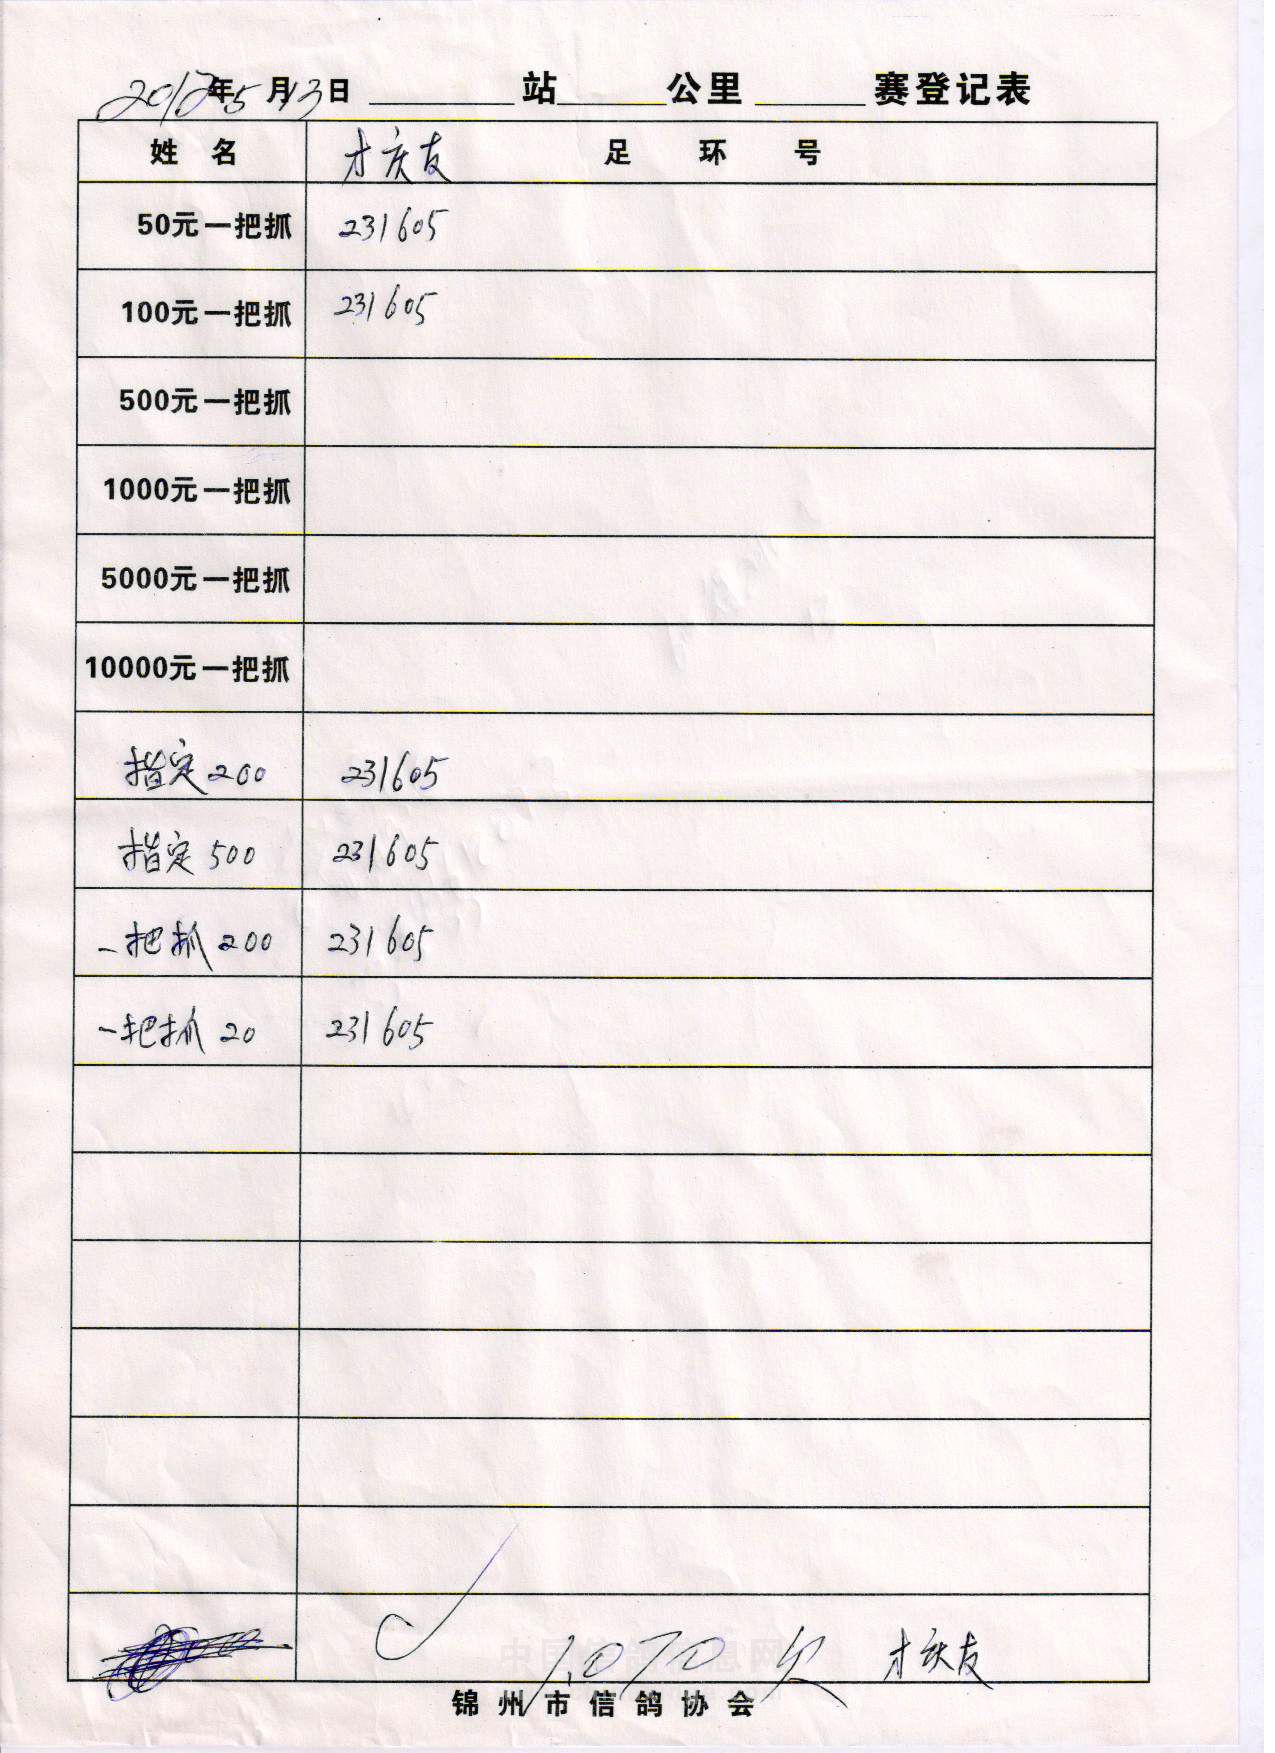 2012年5月13日 站 公里 赛登记表
姓 名 才庆友 足 环 号
50元一把抓 231605
100元一把抓 231605
500元一把抓
1000元一把抓
5000元一把抓
10000元一把抓
指定200 231605
指定500 231605
一把抓200 231605
一把抓20 231605
1,070 欠 才庆友
锦州市信鸽协会